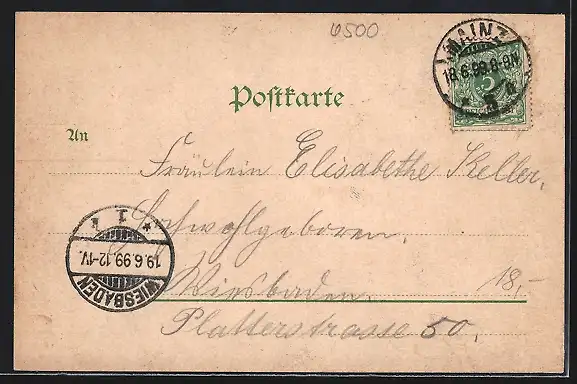 6500
MAINZ
18.6.99.8-9N
Postkarte
An
Fräulein Elisabethe Keller.
Hochwohlgeboren,
Wiesbaden.
18,-
Platterstrasse 50.
WIESBADEN
19.6.99.12-1V.